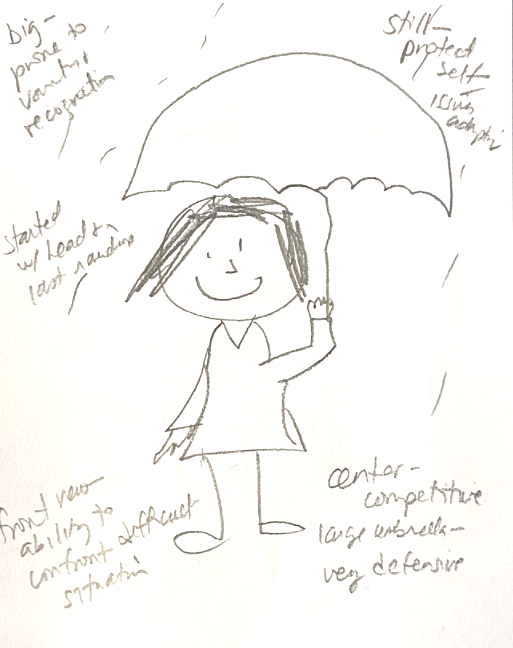 big -
prone to
wanting
recognition
still -
protect
self -
issues
adapting
started
w/ head &
last
front view
ability to
confront difficult
situation
center -
competitive
large umbrella -
very defensive